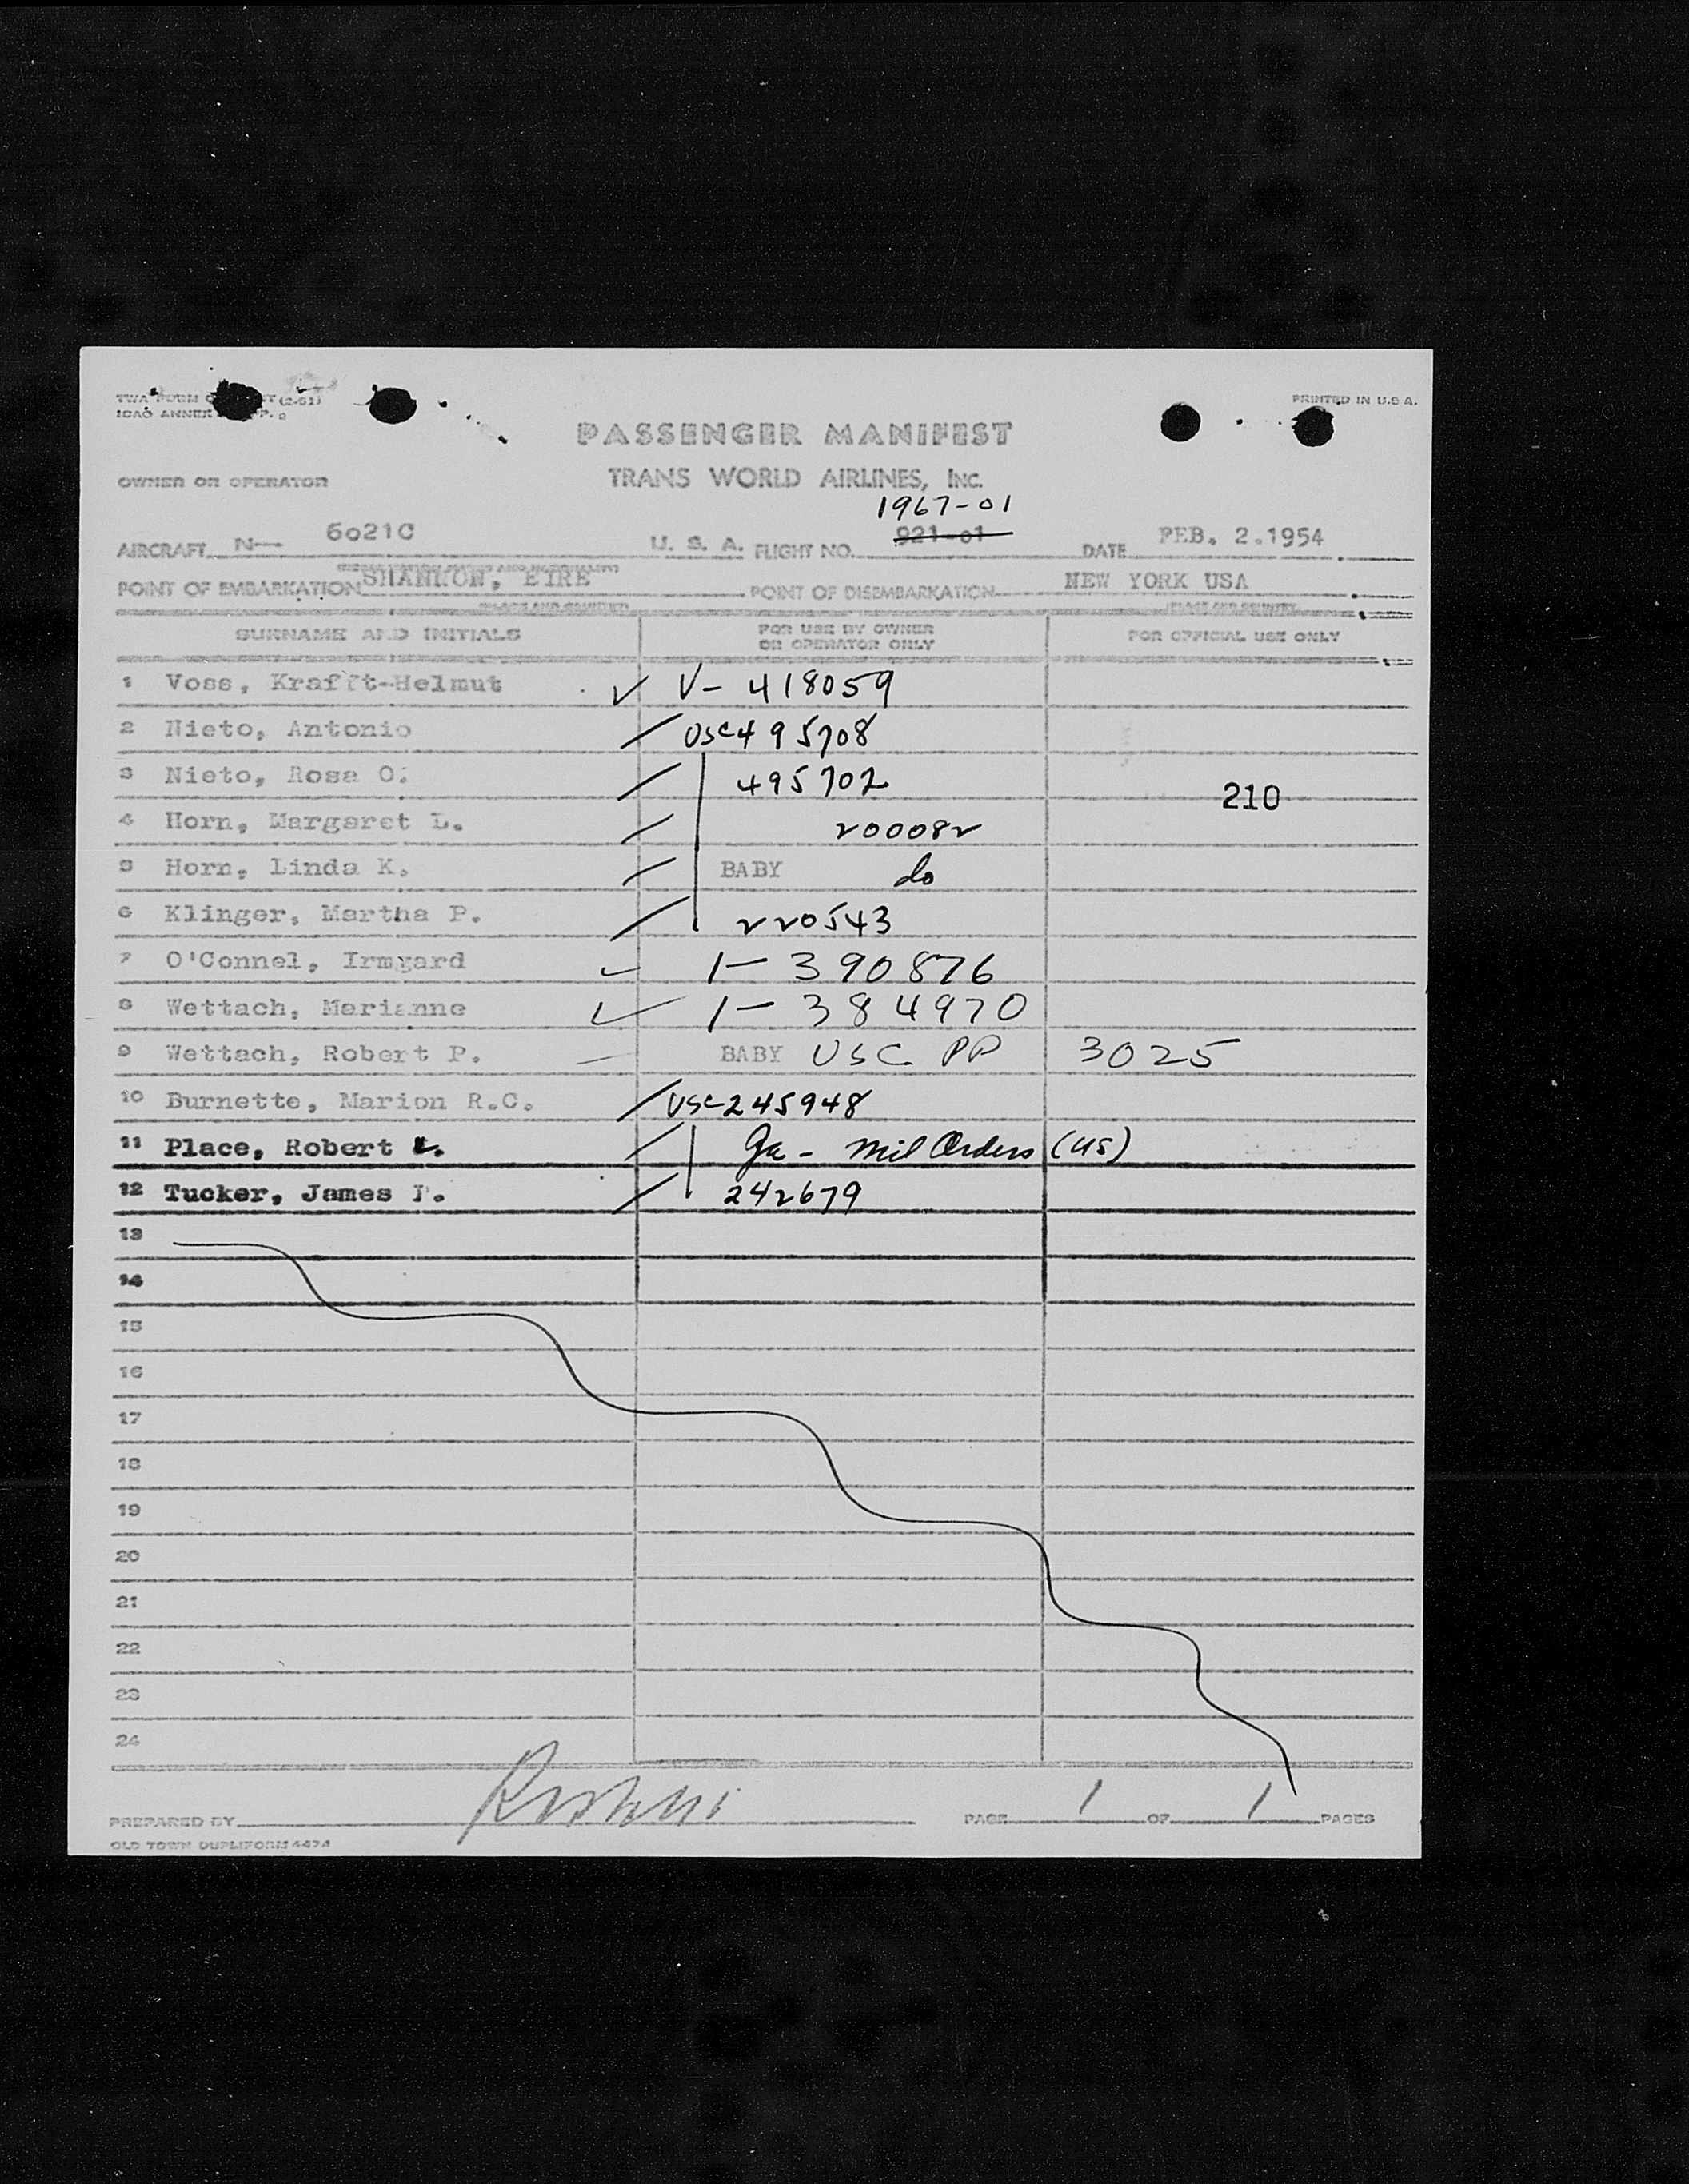 PRINTED IN U.S.A.
PASSENGER MANIFEST
OWNER OR OPERATOR TRANS WORLD AIRLINES, INC.
1967-01
AIRCRAFT N- 6021C U. S. A. FLIGHT NO. 921-01 DATE FEB. 2.1954
POINT OF EMBARKATION SHANNON, EIRE POINT OF DISEMBARKATION NEW YORK USA
SURNAME AND INITIALS FOR USE BY OWNER OR OPERATOR ONLY FOR OFFICIAL USE ONLY
1 Voss, Krafft-Helmut V- 418059
2 Nieto, Antonio USC 495708
3 Nieto, Rosa O. 495702 210
4 Horn, Margaret L. 200082
5 Horn, Linda K. BABY do
6 Klinger, Martha P. 220543
7 O'Connel, Irmgard 1- 390876
8 Wettach, Marianne 1- 384970
9 Wettach, Robert P. BABY USC PP 3025
10 Burnette, Marion R.C. USC 245948
11 Place, Robert Mil Orders (US)
12 Tucker, James 242679
13
14
15
16
17
18
19
20
21
22
23
24
PREPARED BY PAGE 1 OF 1 PAGES
OLD TOWN DUPLIFORM 4474